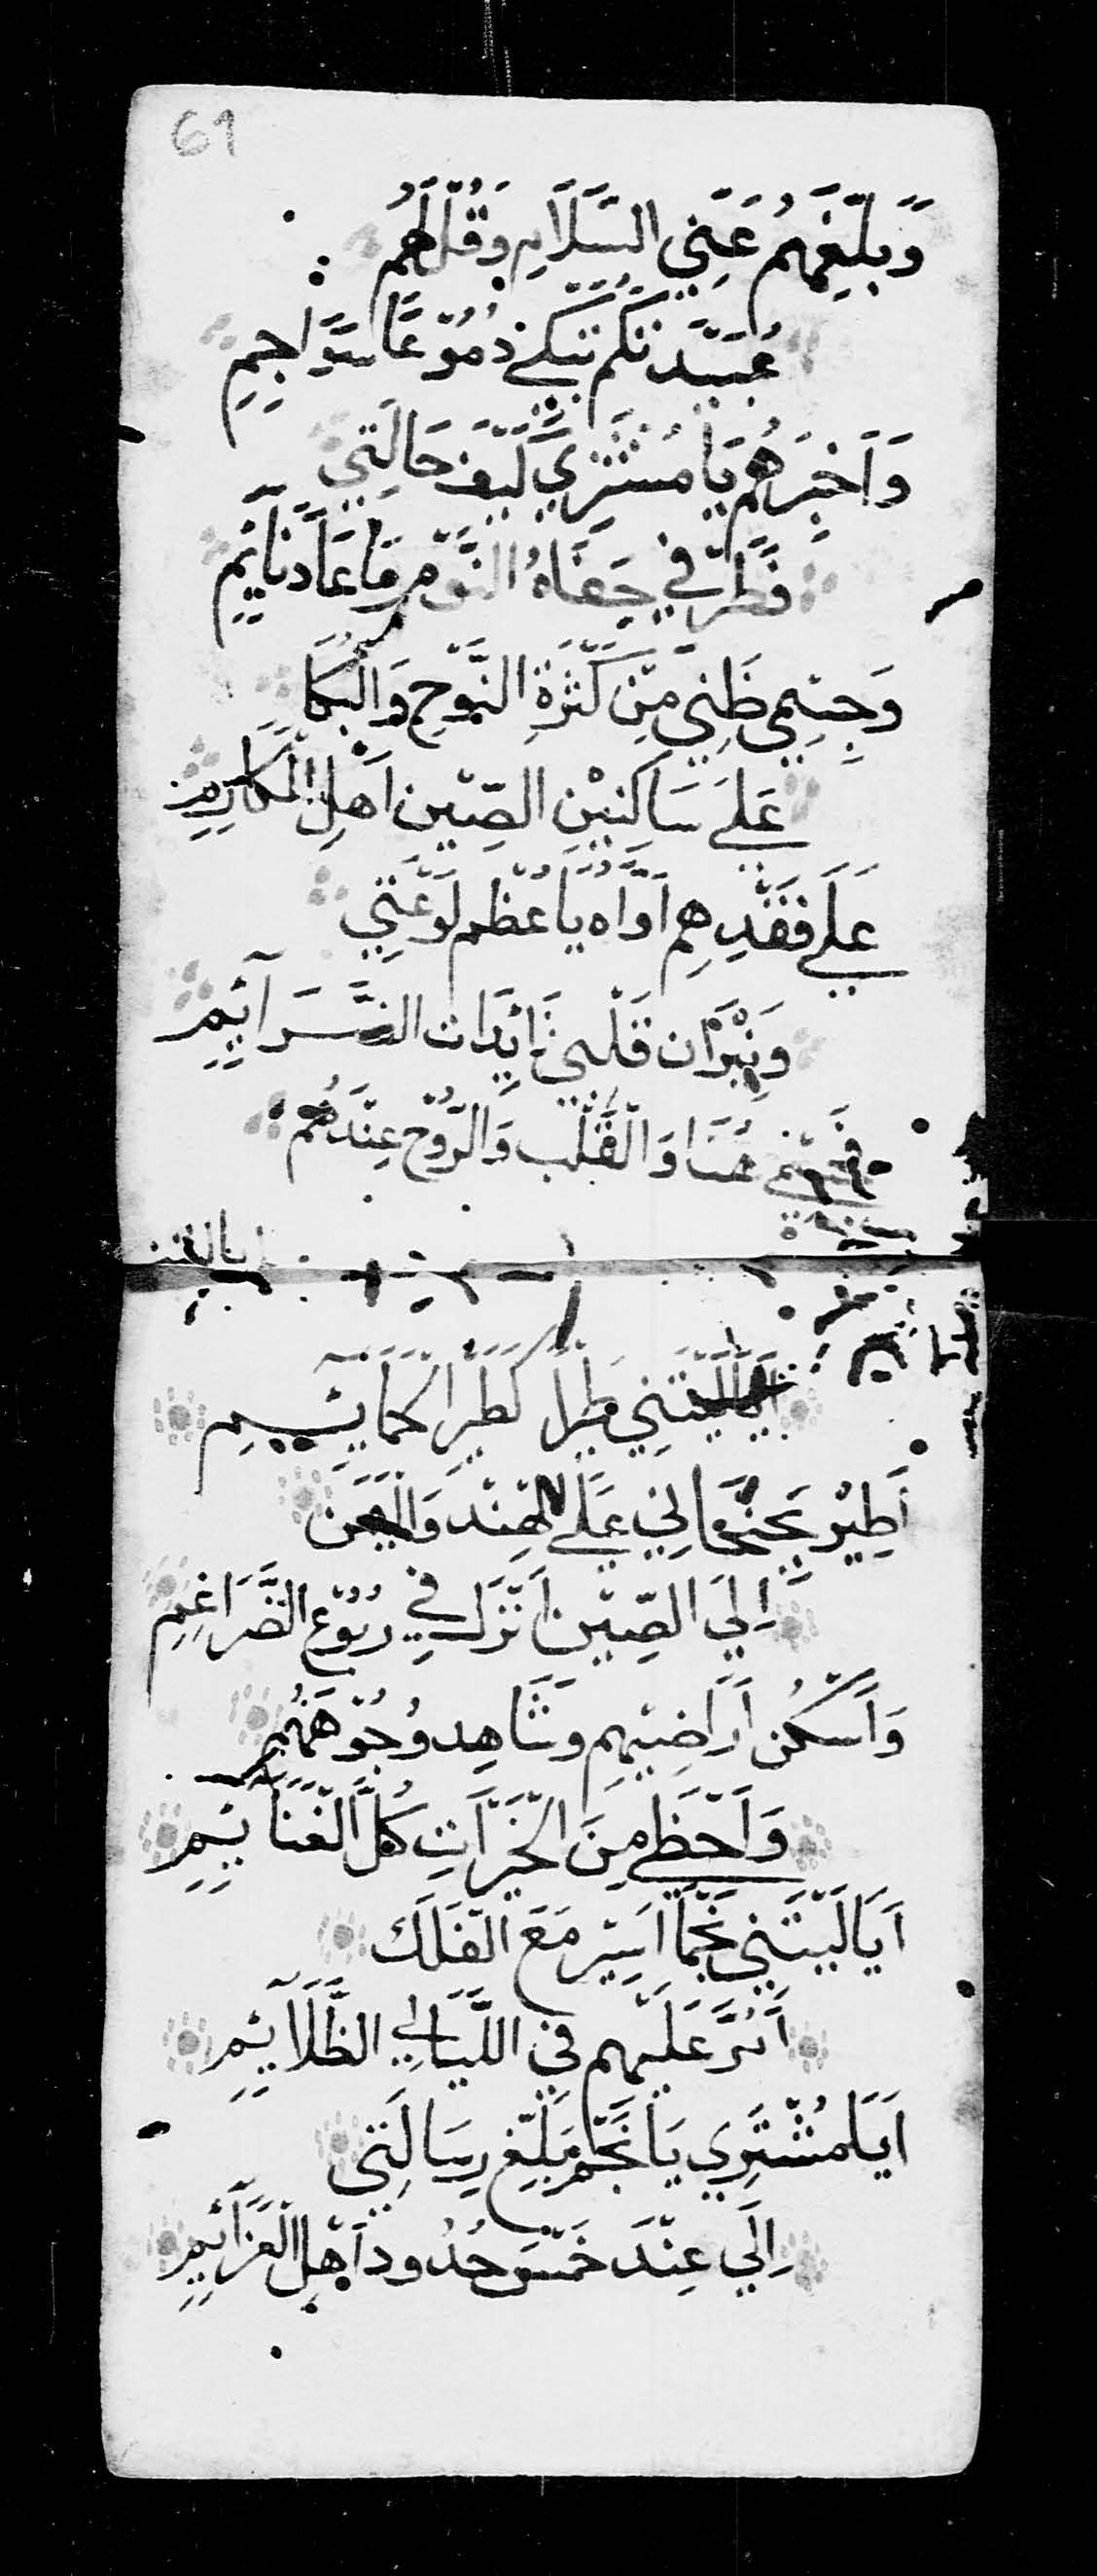 61
وَبَلِّغْهُمُ عَنِّي السَّلَامِ وَقُلْ لَهُمُ
عُبَيْدَتكُم تَبكِي دُمُوْعًا سَوَاجِمِ
وَاَخبِرهُم يَا مُشْتَرِي كَيْفَ حَالَتِي
فَطَرْفِي جَفَاهُ النَّوْمِ مَا عَادَ نَآئِمِ
وَجِسْمِي ضَنِي مِنْ كَثْرَةِ النَّوْحِ وَالْبُكَا
عَلَى سَاكِنِيْنِ الصِّيْنِ اَهْلِ الْمَكَارِمِ
عَلَى فَقْدِهِم اَوَّاهُ يَا عُظْمِ لَوْعَتِي
وَنِيْرَانِ قَلْبِي زَائِدَاتِ الضَّرَآئِمِ
هُنَا وَالْقَلْبِ وَالرُّوْحِ عِنْدَهُمُ
ايا ليتني
اَيَا لَيْتَنِي طَيْرًا كَطَيْرِ الحَمَآئِمِ
اَطِيْر بَجَنْحَانِي عَلَى الهِنْد وَاليَمَن
اِلَى الصِّيْنِ اَنْزَل فِي رُبُوْعِ الضَّرَاغِمِ
وَاَسْكُن اَرَاضِيْهِم وَشَاهِد وُجُوْهَهُمُ
وَاَحْظَى مِنَ الْخَيْرَاتِ كُلَّ الْغَنَآئِمِ
اَيَا لَيْتَنِي نَجْمًا اَسِيْر مَعَ الْفَلَك
اَمُرَّ عَلَيْهِم فِي اللَّيَالِي الظَّلَآئِمِ
اَيَا مُشْتَرِي يَا نَجْم بَلِّغ رِسَالَتِي
اِلَى عِنْدَ خَمْسَ حُدُود اَهْلِ الْعَزَآئِمِ